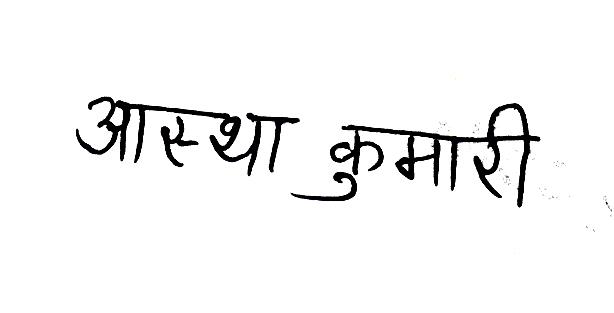 आस्था कुमारी